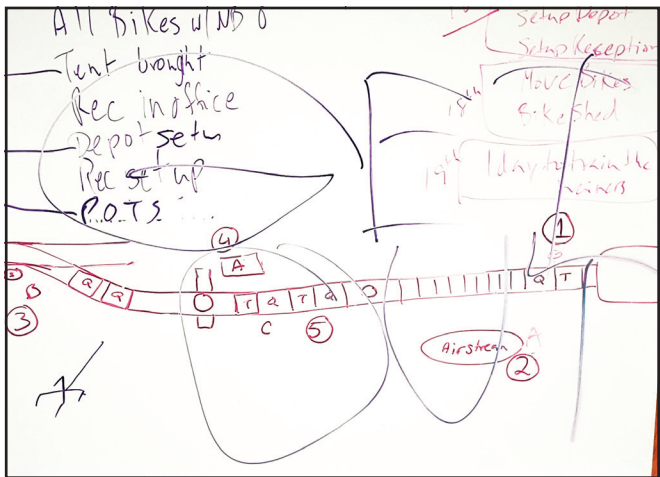 All Bikes w/ND O
Tent brought
Rec in office
Depot setu
Rec setup
P.O.T.S.....
Setup Depot
Setup Reception
18th
Move bikes
Bike Shed
19th
1 day to train the
trainers
4
A
1
3
B
Q Q
O
T Q T Q
O
Q T
C
5
Airstream
A
2